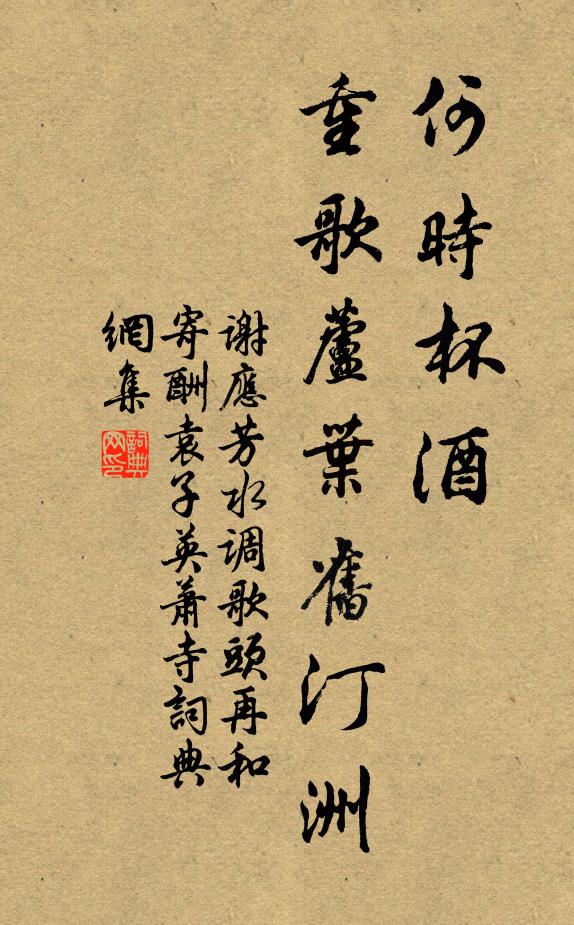 何時杯酒
重歌蘆葉舊汀洲
謝應芳水調歌頭再和
寄酬袁子英蕭寺詞典
網集
詞典
网印